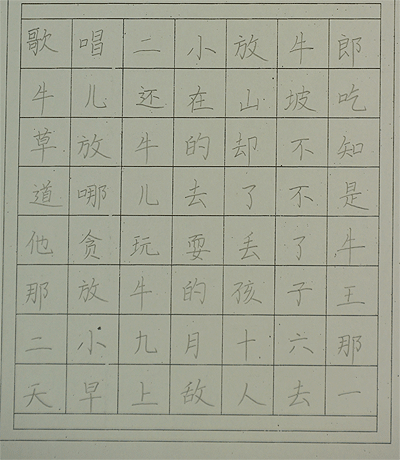 歌唱二小放牛郎
牛儿还在山坡吃
草放牛的却不知
道哪儿去了不是
他贪玩耍丢了牛
那放牛的孩子王
二小九月十六那
天早上敌人去一